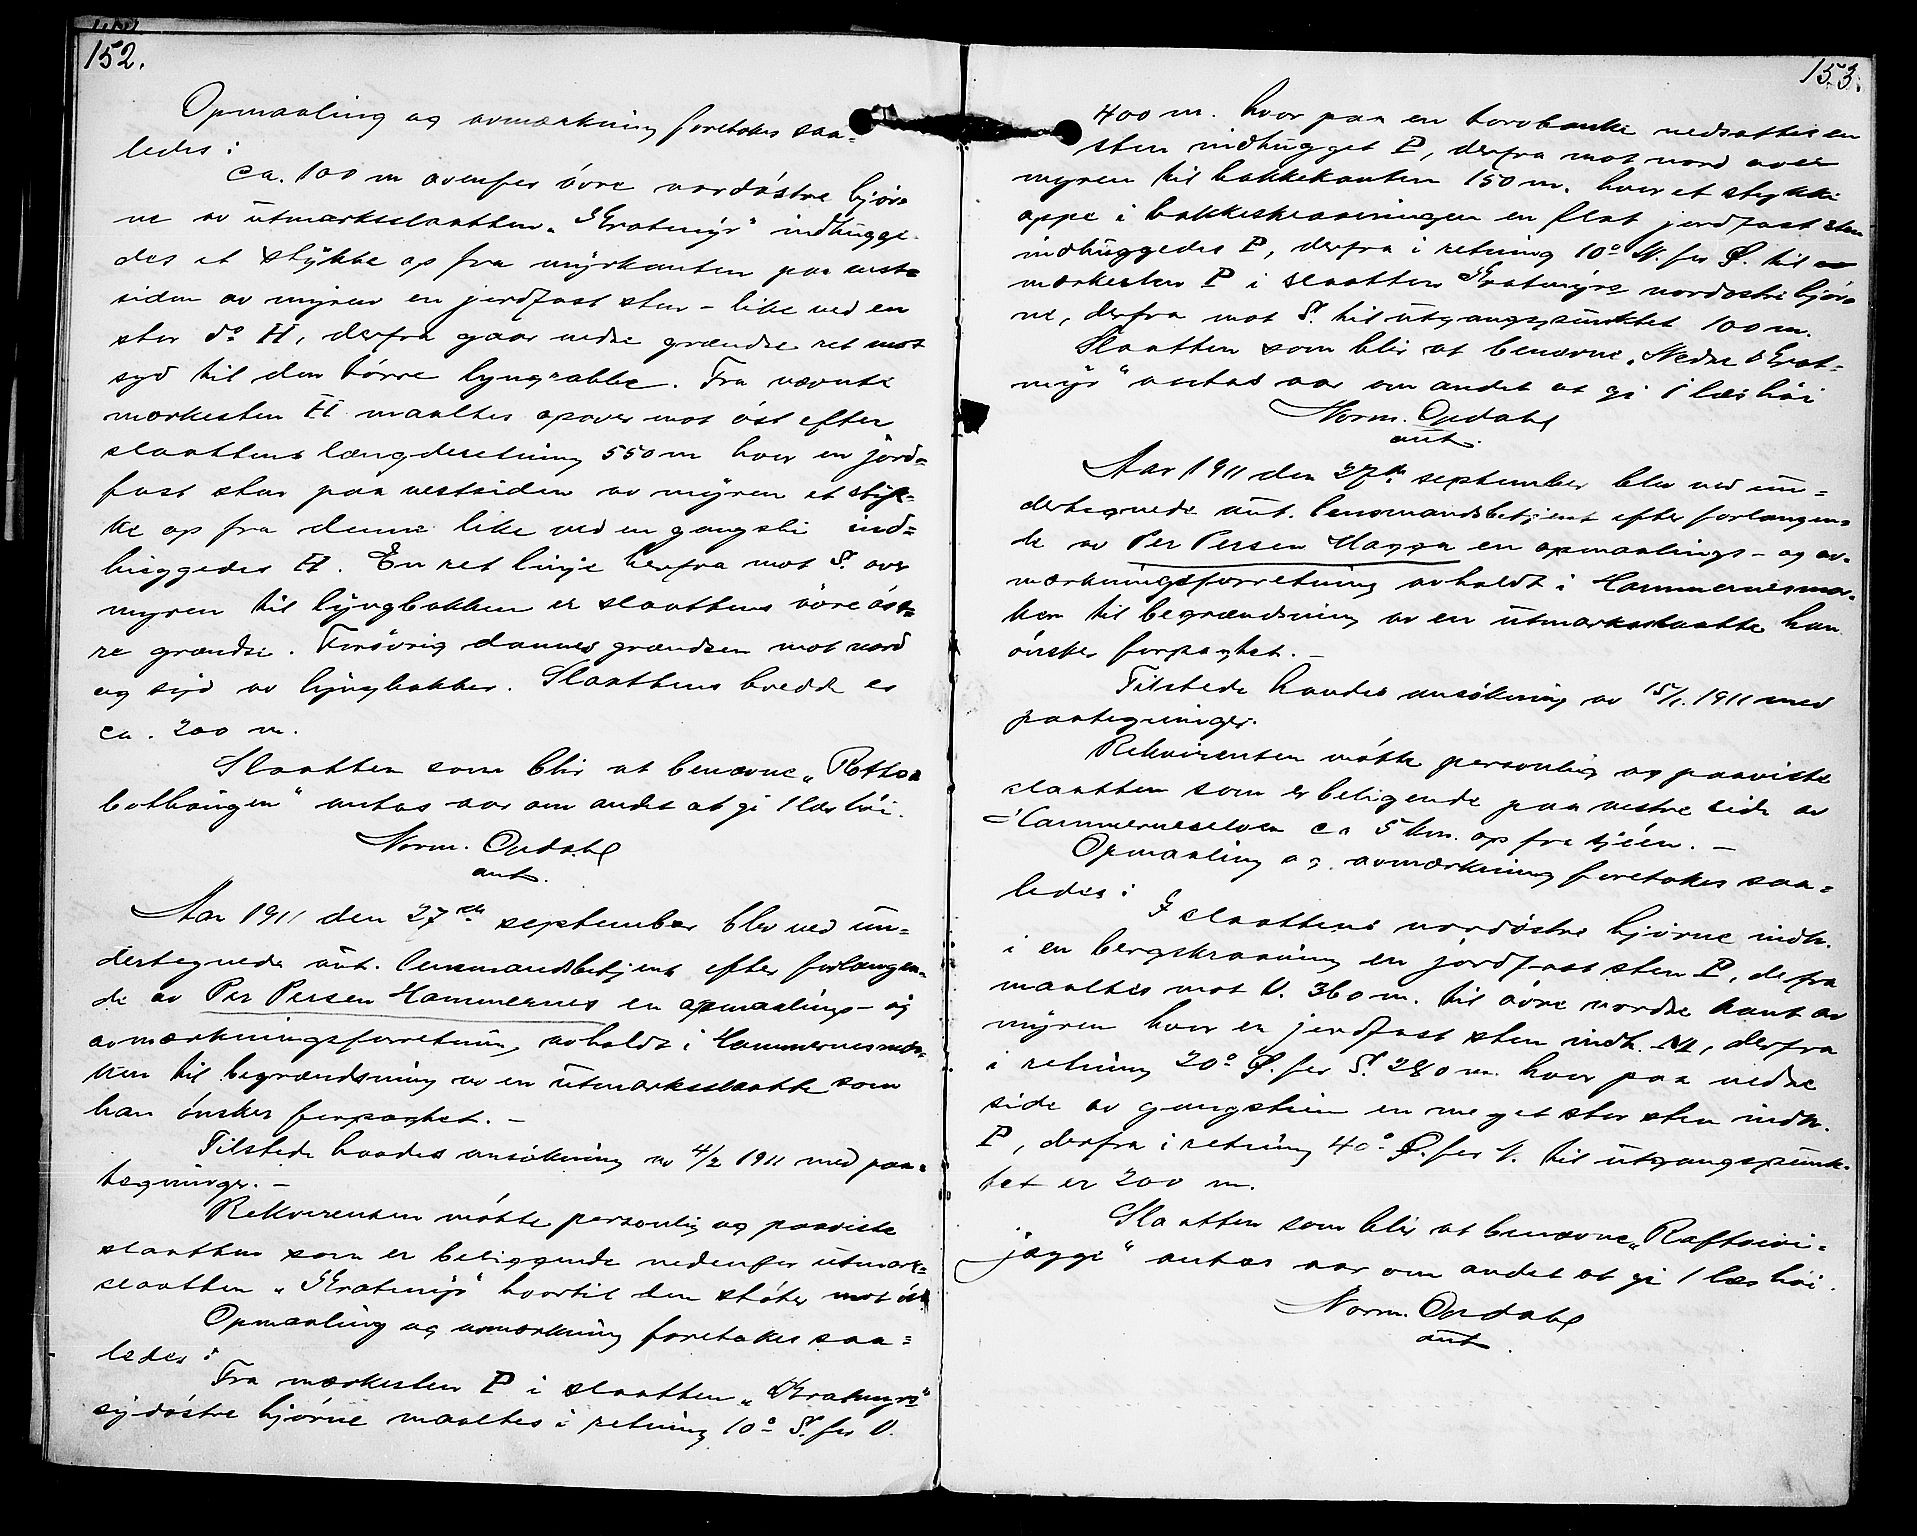 152.
Opmaaling og avmærkning foretokes saa-
ledes:
ca. 100 m ovenfor övre nordöstre hjör-
ne av utmarksslaatten „Kratmyr" indhugge-
des et stykke op fra myrkanten paa vest-
siden av myren en jordfast sten - like ved en
stor do H, derfra gaar nedre grændse ret mot
syd til den törre lyngrabbe. Fra nævnte
merkesten H maaltes opover mot öst efter
slaattens længderetning 550 m hvor en jord-
fast sten paa vestsiden av myren et styk-
ke op fra denne like ved en gangsti ind-
huggedes H. En ret linje herfra mot S. over
myren til lyngbakken er slaattens övre öst-
re grændse. Forövrig dannes grændsen mot nord
og syd av lyngbakker. Slaattens bredde er
ca. 200 m.
Slaatten som blir at benævne „Rotto-
bothaugen" antas aar om andet at gi 1 læs höi.
Norm. Opdahl
aut.
Aar 1911 den 27de september blev ved un-
dertegnede aut. lensmandsbetjent efter forlangen-
de av Per Persen Hammernes en opmaalings- og
avmærkningsforretning avholdt i Hammernesmar-
ken til begrændsning av en utmarksslaatte som
han önsker forpagtet. -
Tilstede havdes ansökning av 4/2 1911 med paa-
tegninger. -
Rekvirenten mötte personlig og paaviste
slaatten som er beliggende nedenfor utmark-
slaatten „Kratmyr" hvortil den stöter mot öst
Opmaaling og avmærkning foretokes saa-
ledes:
Fra mærkesten P i slaatten „Kratmyrs"
sydöstre hjörne maaltes i retning 10° S. for V.
153.
400 m. hvor paa en torvbanke nedsattes en
sten indhugget P, derfra mot nord over
myren til bakkekanten 150 m. hvor et stykke
oppe i bakkeskraaningen en flat jordfast sten
indhuggedes P, derfra i retning 10° N. for Ø. til
mærkesten P i slaatten Kratmyrs nordöstre hjör-
ne, derfra mot S. til utgangspunktet 100 m.
Slaatten som blir at benævne „Nedre Krat-
myr" antas aar om andet at gi 1 læs höi
Norm. Opdahl
aut.
Aar 1911 den 27de september blev ved un-
dertegnede aut. lensmandsbetjent efter forlangen-
de av Per Persen Hagga en opmaalings- og av-
mærkningsforretning avholdt i Hammernesmar-
ken til begrændsning av en utmarksslaatte han
önsker forpagtet. -
Tilstede havdes ansökning av 15/1. 1911 med
paategninger.
Rekvirenten mötte personlig og paaviste
slaatten som er beligende paa vestre side av
Hammerneselven ca 5 km. op fra sjöen. -
Opmaaling og avmærkning foretokes saa-
ledes:
I slaattens nordöstre hjörne indh.
i en bergskraaning en jordfast sten P, derfra
maaltes mot V. 360 m. til övre nordre kant av
myren hvor en jordfast sten indh. N, derfra
i retning 20° Ø. for S. 280 m. hvor paa nedre
side av gangstien en meget stor sten indh.
P, derfra i retning 40° Ø. for N. til utgangspunk-
tet er 200 m.
Slaatten som blir at benævne „Raftovi-
jægge" antas aar om andet at gi 1 læs höi.
Norm. Opdahl
aut.